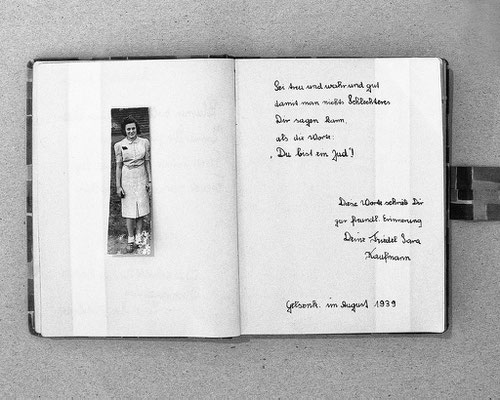 Sei treu und wahr und gut
damit man nichts Schlechteres
Dir sagen kann,
als die Worte:
„Du bist ein Jud"!
Diese Worte schrieb Dir
zur freundl. Erinnerung
Deine Friedel Sara
Kaufmann
Gelsenk. im August 1939